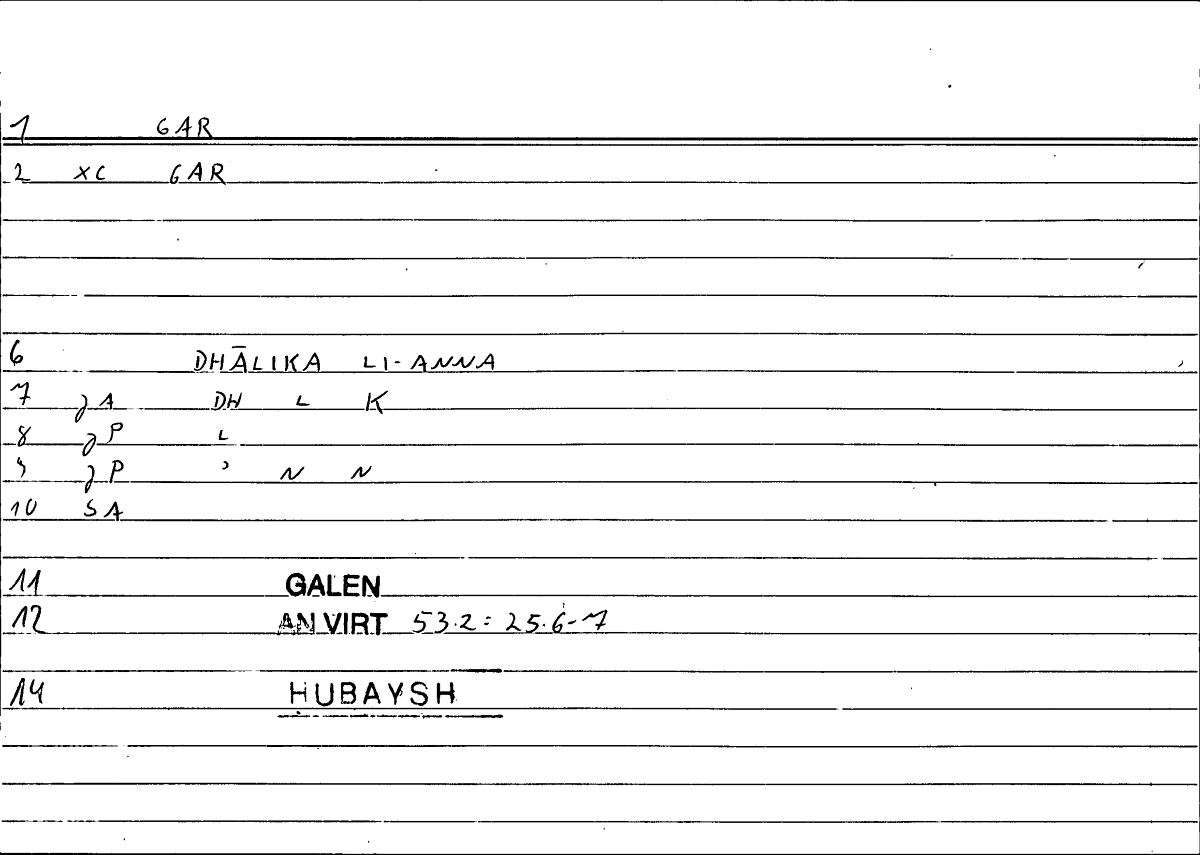 1 GAR
2 XC GAR
6 DHĀLIKA LI-ANNA
7 JA DH L K
8 JP L
9 JP ʾ N N
10 SA
11 GALEN
12 AN VIRT 53.2 = 25.6-7
14 HUBAYSH